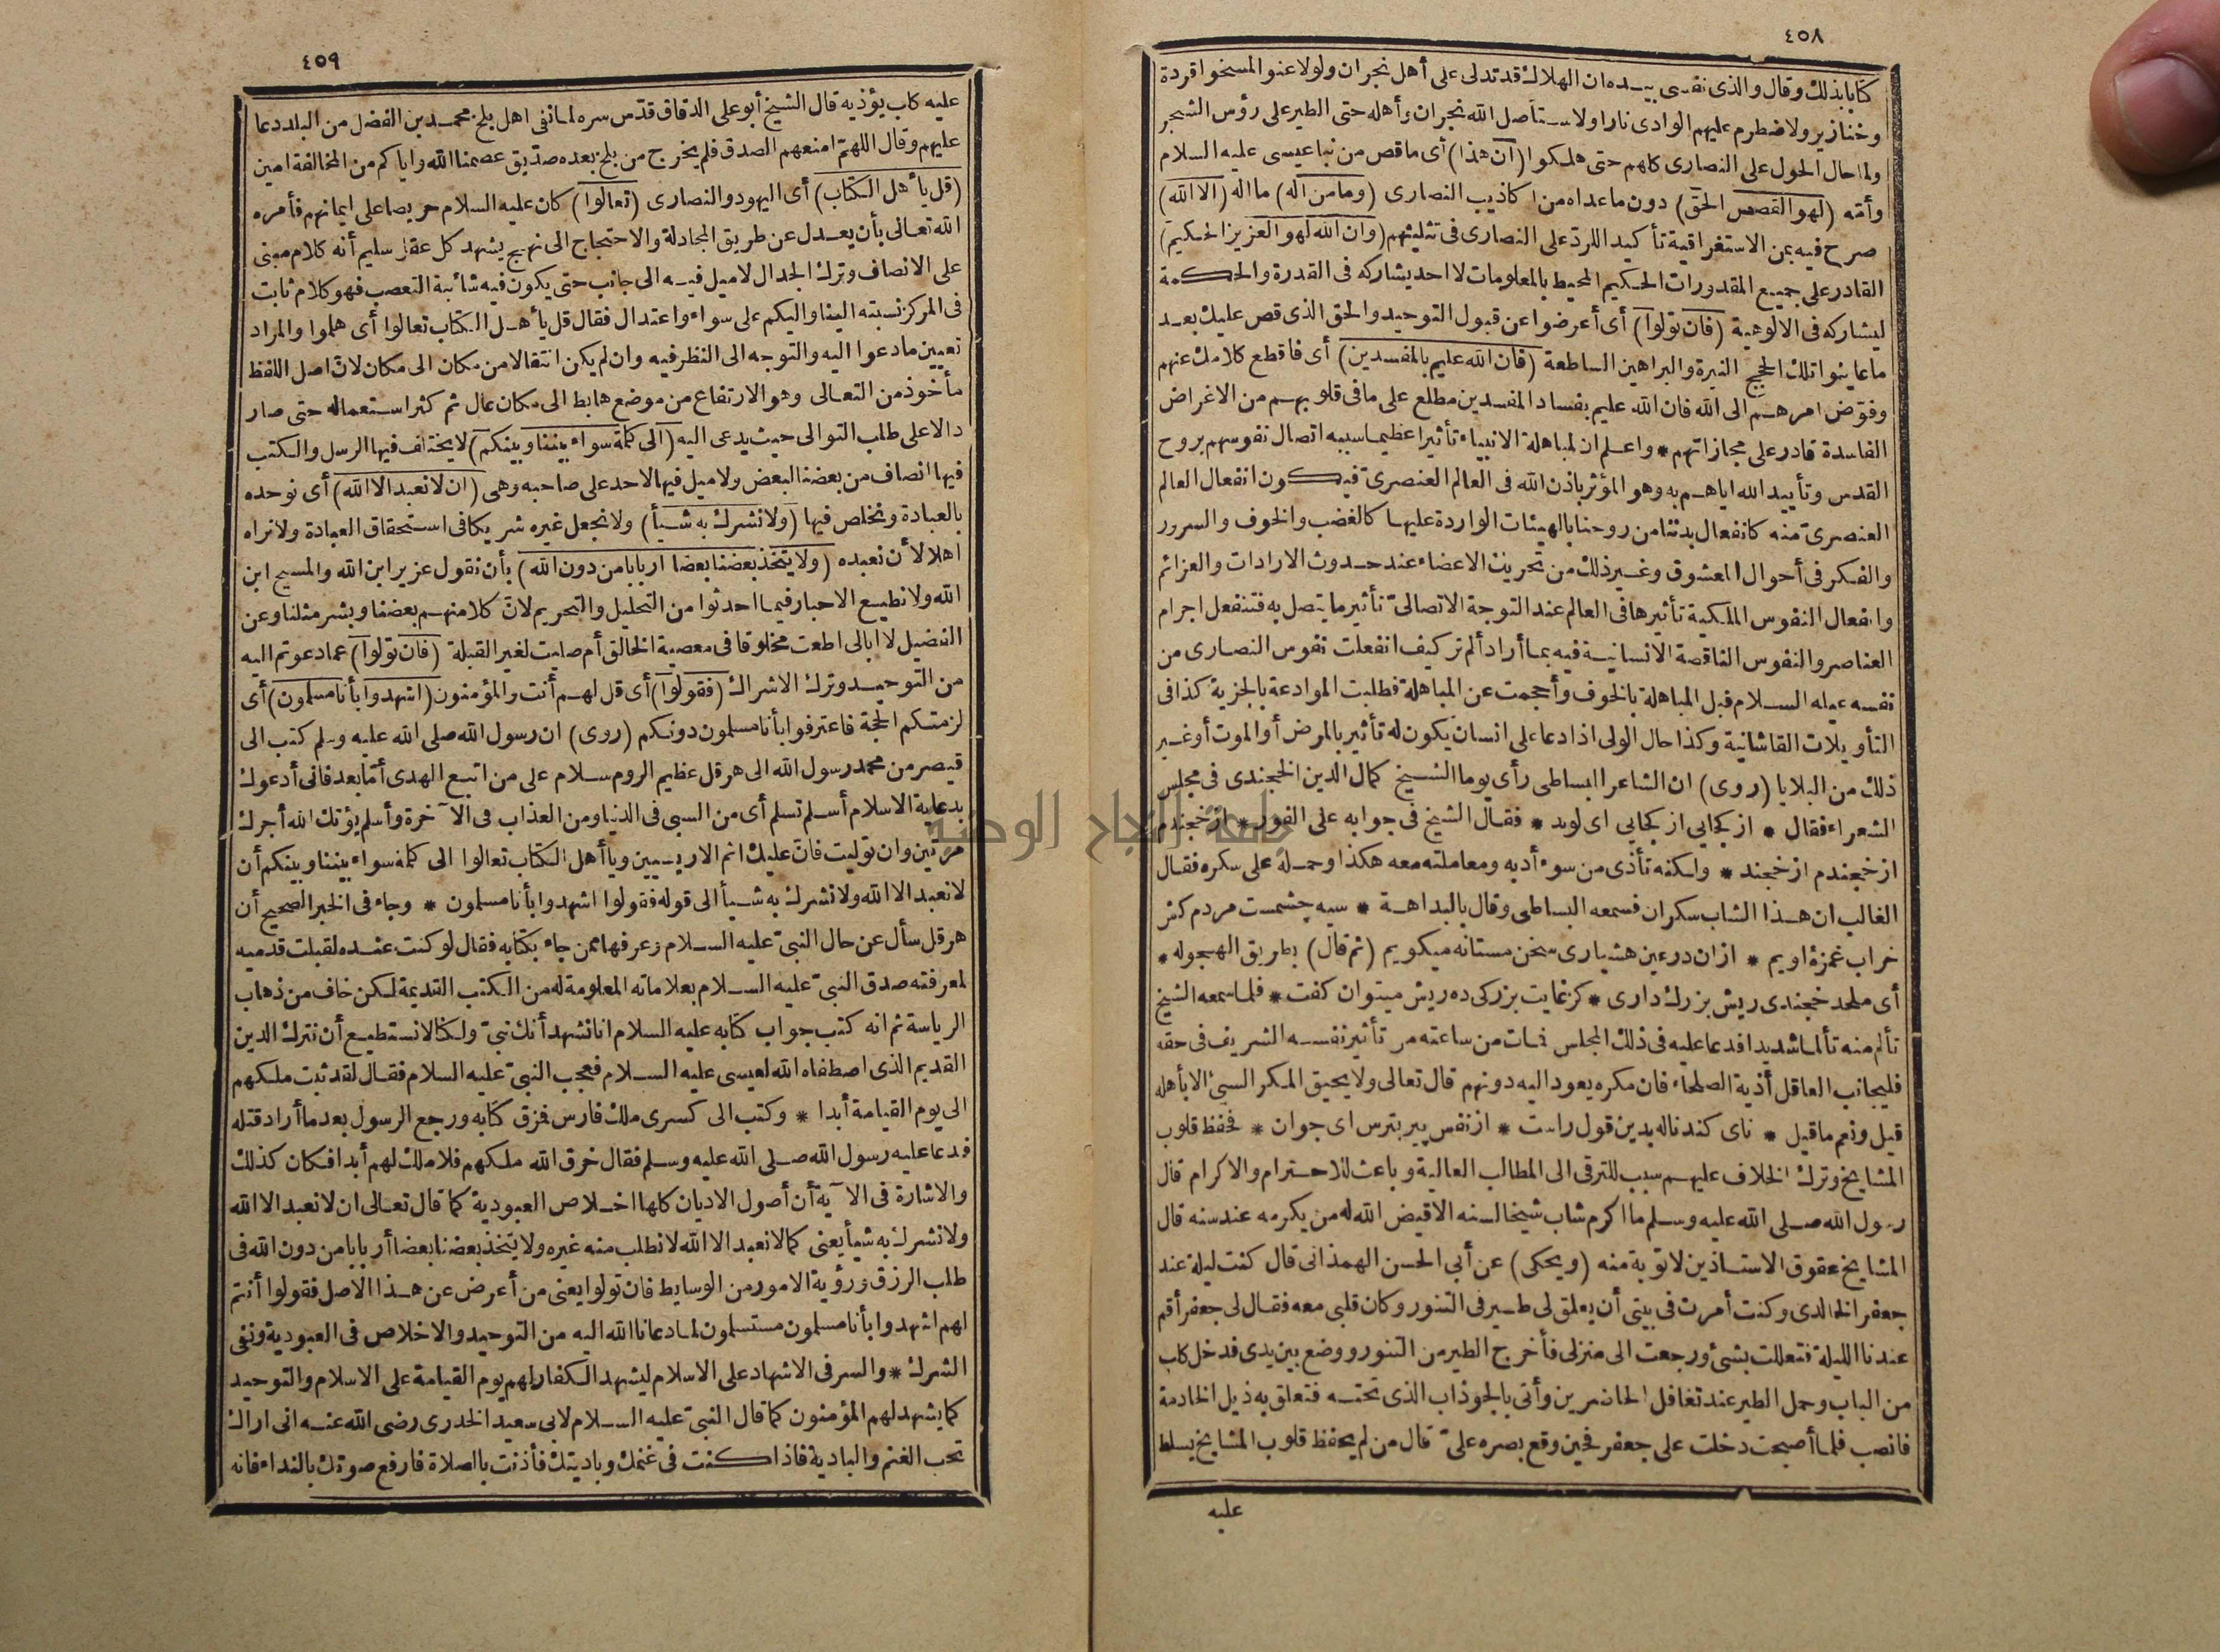 ٤٥٨
كتابا بذلك وقال والذى نفسى بيده ان الهلاك قد تدلى على أهل نجران ولو لاعنوا لمسخوا قردة
وخنازير ولاضطرم عليهم الوادى نارا ولاستأصل الله نجران وأهله حتى الطير على رؤس الشجر
ولما حال الحول على النصارى كلهم حتى هلكوا (ان هذا) أى ما قص من نبا عيسى عليه السلام
وأمّه (لهو القصص الحق) دون ما عداه من اكاذيب النصارى (وما من اله) ما اله (الا الله)
صرح فيه بمن الاستغراقية تأكيدا للردّ على النصارى فى تثليثهم (وان الله لهو العزيز الحكيم)
القادر على جميع المقدورات الحكيم المحيط بالمعلومات لا احد يشاركه فى القدرة والحكمة
ليشاركه فى الالوهية (فان تولوا) أى أعرضوا عن قبول التوحيد والحق الذى قص عليك بعد
ما عاينوا تلك الحجج النيرة والبراهين الساطعة (فان الله عليم بالمفسدين) أى فاقطع كلامك عنهم
وفوّض امرهم الى الله فان الله عليم بفساد المفسدين مطلع على ما فى قلوبهم من الاغراض
الفاسدة قادر على مجازاتهم * واعلم ان لمباهلة الانبياء تأثيرا عظيما سببه اتصال نفوسهم بروح
القدس وتأييد الله اياهم به وهو المؤثر باذن الله فى العالم العنصرىّ فيكون انفعال العالم
العنصرىّ منه كانفعال بدننا من روحنا بالهيئات الواردة عليها كالغضب والخوف والسرور
والفكر فى أحوال المعشوق وغير ذلك من تحريك الاعضاء عند حدوث الارادات والعزائم
وانفعال النفوس الملكية تأثيرها فى العالم عند التوجه الاتصالىّ تأثير ما يتصل به فتنفعل اجرام
العناصر والنفوس الناقصة الانسانية فيه بما أراد ألم تر كيف انفعلت نفوس النصارى من
نفسه عليه السلام قبل المباهلة بالخوف وأحجمت عن المباهلة فطلبت الموادعة بالجزية كذا فى
التأويلات القاشانية وكذا حال الولى اذا دعا على انسان يكون له تأثير بالمرض أو الموت أو غير
ذلك من البلايا (روى) ان الشاعر البساطى رأى يوما الشيخ كمال الدين الخجندى فى مجلس
الشعراء فقال * از كجايى از كجايى اى لوند * فقال الشيخ فى جوابه على الفور * از خجندم
از خجندم از خجند * ولكنه تأذى من سوء أدبه ومعاملته معه هكذا وحمله على سكره فقال
الغالب ان هذا الشاب سكران فسمعه البساطى وقال بالبداهة * سيه چشمست مردم كش
خراب غمزهٔ اويم * ازان در عين هشيارى سخن مستانه ميكويم (ثم قال) بطريق الهجو له *
أى ملحد خجندى ريش بزرك دارى * كز غايت بزركى ده ريش ميتوان كفت * فلما سمعه الشيخ
تألم منه تألما شديدا فدعا عليه فى ذلك المجلس فمات من ساعته من تأثير نفسه الشريف فى حقه
فليجانب العاقل أذية الصلحاء فان مكره يعود اليه دونهم قال تعالى ولا يحيق المكر السيئ الا بأهله
قيل ونعم ما قيل * ناى كند ناله بدين قول راست * از نفس پير بترس اى جوان * فحفظ قلوب
المشايخ وترك الخلاف عليهم سبب للترقى الى المطالب العالية وباعث للاحترام والاكرام قال
رسول الله صلى الله عليه وسلم ما اكرم شاب شيخا لسنه الا قيض الله له من يكرمه عند سنه قال
المشايخ عقوق الاستاذين لا توبة منه (ويحكى) عن أبى الحسن الهمذانى قال كنت ليلة عند
جعفر الخالدى وكنت أمرت فى بيتى أن يعلق لى طير فى التنور وكان قلبى معه فقال لى جعفر أقم
عندنا الليلة فتعللت بشئ ورجعت الى منزلى فأخرج الطير من التنور ووضع بين يدى فدخل كلب
من الباب وحمل الطير عند تغافل الحاضرين وأتى بالجوذاب الذى تحته فتعلق به ذيل الخادمة
فانصب فلما أصبحت دخلت على جعفر فحين وقع بصره علىّ قال من لم يحفظ قلوب المشايخ يسلط
عليه
٤٥٩
عليه كلب يؤذيه قال الشيخ أبو على الدقاق قدّس سره لما نفى اهل بلخ محمد بن الفضل من البلد دعا
عليهم وقال اللهمّ امنعهم الصدق فلم يخرج من بلخ بعده صدّيق عصمنا الله واياكم من المخالفة امين
(قل يا أهل الكتاب) أى اليهود والنصارى (تعالوا) كان عليه السلام حريصا على ايمانهم فأمره
الله تعالى بأن يعدل عن طريق المجادلة والاحتجاج الى نهج يشهد كل عقل سليم أنه كلام مبنى
على الانصاف وترك الجدال لا ميل فيه الى جانب حتى يكون فيه شائبة التعصب فهو كلام ثابت
فى المركز نسبته الينا واليكم على سواء واعتدال فقال قل يا أهل الكتاب تعالوا أى هلموا والمراد
تعيين ما دعوا اليه والتوجه الى النظر فيه وان لم يكن انتقالا من مكان الى مكان لانّ اصل اللفظ
مأخوذ من التعالى وهو الارتفاع من موضع هابط الى مكان عال ثم كثر استعماله حتى صار
دالا على طلب التوالى حيث يدعى اليه (الى كلمة سواء بيننا وبينكم) لا يختلف فيها الرسل والكتب
فيها انصاف من بعضنا لبعض ولا ميل فيها لاحد على صاحبه وهى (ان لا نعبد الا الله) أى نوحده
بالعبادة ونخلص فيها (ولا نشرك به شيأ) ولا نجعل غيره شريكا فى استحقاق العبادة ولا نراه
اهلا لأن نعبده (ولا يتخذ بعضنا بعضا اربابا من دون الله) بأن نقول عزير ابن الله والمسيح ابن
الله ولا نطيع الاحبار فيما احدثوا من التحليل والتحريم لانّ كلا منهم بعضنا وبشر مثلنا وعن
الفضيل لا ابالى اطعت مخلوقا فى معصية الخالق أم صليت لغير القبلة (فان تولوا) عما دعوتم اليه
من التوحيد وترك الاشراك (فقولوا) أى قل لهم أنت والمؤمنون (اشهدوا بأنا مسلمون) أى
لزمتكم الحجة فاعترفوا بأنا مسلمون دونكم (روى) ان رسول الله صلى الله عليه وسلم كتب الى
قيصر من محمد رسول الله الى هرقل عظيم الروم سلام على من اتبع الهدى أمّا بعد فانى أدعوك
بدعاية الاسلام أسلم تسلم أى من السبى فى الدنيا ومن العذاب فى الآخرة وأسلم يؤتك الله أجرك
مرّتين وان توليت فانّ عليك اثم الاريسيين ويا أهل الكتاب تعالوا الى كلمة سواء بيننا وبينكم أن
لا نعبد الا الله ولا نشرك به شيأ الى قوله فقولوا اشهدوا بأنا مسلمون * وجاء فى الخبر الصحيح أن
هرقل سأل عن حال النبىّ عليه السلام وعرفها ممن جاء بكتابه فقال لو كنت عنده لقبلت قدميه
لمعرفته صدق النبىّ عليه السلام بعلاماته المعلومة له من الكتب القديمة لكن خاف من ذهاب
الرياسة ثم انه كتب جواب كتابه عليه السلام انا نشهد أنك نبىّ ولكنا لا نستطيع أن نترك الدين
القديم الذى اصطفاه الله لعيسى عليه السلام فعجب النبىّ عليه السلام فقال لقد ثبت ملكهم
الى يوم القيامة أبدا * وكتب الى كسرى ملك فارس فمزق كتابه ورجع الرسول بعد ما أراد قتله
فدعا عليه رسول الله صلى الله عليه وسلم فقال خرق الله ملكهم فلا ملك لهم أبدا فكان كذلك
والاشارة فى الآية أن أصول الاديان كلها اخلاص العبودية كما قال تعالى ان لا نعبد الا الله
ولا نشرك به شيأ يعنى كما لا نعبد الا الله لا نطلب منه غيره ولا يتخذ بعضنا بعضا أربابا من دون الله فى
طلب الرزق ورؤية الامور من الوسايط فان تولوا يعنى من أعرض عن هذا الاصل فقولوا أنتم
لهم اشهدوا بأنا مسلمون مستسلمون لما دعانا الله اليه من التوحيد والاخلاص فى العبودية ونفى
الشرك * والسر فى الاشهاد على الاسلام ليشهد الكفار لهم يوم القيامة على الاسلام والتوحيد
كما يشهد لهم المؤمنون كما قال النبىّ عليه السلام لابى سعيد الخدرى رضى الله عنه انى اراك
تحب الغنم والبادية فاذا كنت فى غنمك وباديتك فأذنت بالصلاة فارفع صوتك بالنداء فانه
جامعة النجاح الوطنية